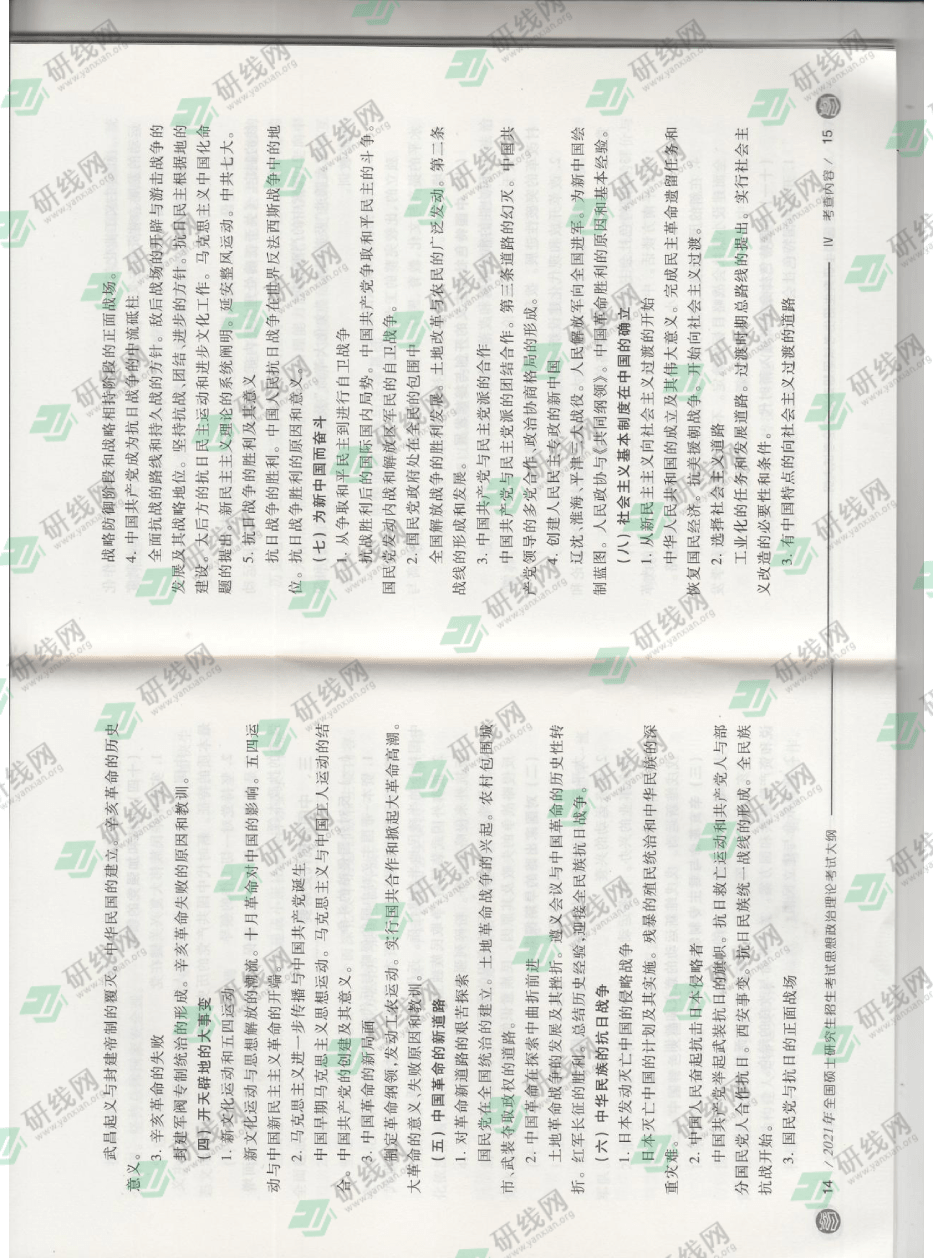 武昌起义与封建帝制的覆灭。中华民国的建立。辛亥革命的历史
意义。
3. 辛亥革命的失败
封建军阀专制统治的形成。辛亥革命失败的原因和教训。
(四)开天辟地的大事变
1. 新文化运动和五四运动
新文化运动与思想解放的潮流。十月革命对中国的影响。五四运
动与中国新民主主义革命的开端。
2. 马克思主义进一步传播与中国共产党诞生
中国早期马克思主义思想运动。马克思主义与中国工人运动的结
合。中国共产党的创建及其意义。
3. 中国革命的新局面
制定革命纲领,发动工农运动。实行国共合作和掀起大革命高潮。
大革命的意义、失败原因和教训。
(五)中国革命的新道路
1. 对革命新道路的艰苦探索
国民党在全国统治的建立。土地革命战争的兴起。农村包围城
市、武装夺取政权的道路。
2. 中国革命在探索中曲折前进
土地革命战争的发展及其挫折。遵义会议与中国革命的历史性转
折。红军长征的胜利。总结历史经验,迎接全民族抗日战争。
(六)中华民族的抗日战争
1. 日本发动灭亡中国的侵略战争
日本灭亡中国的计划及其实施。残暴的殖民统治和中华民族的深
重灾难。
2. 中国人民奋起抗击日本侵略者
中国共产党举起武装抗日的旗帜。抗日救亡运动和共产党人与部
分国民党人合作抗日。西安事变。抗日民族统一战线的形成。全民族
抗战开始。
3. 国民党与抗日的正面战场
14 / 2021年全国硕士研究生招生考试思想政治理论考试大纲
战略防御阶段和战略相持阶段的正面战场。
4. 中国共产党成为抗日战争的中流砥柱
全面抗战的路线和持久战的方针。敌后战场的开辟与游击战争的
发展及其战略地位。坚持抗战、团结、进步的方针。抗日民主根据地的
建设。大后方的抗日民主运动和进步文化工作。马克思主义中国化命
题的提出,新民主主义理论的系统阐明。延安整风运动。中共七大。
5. 抗日战争的胜利及其意义
抗日战争的胜利。中国人民抗日战争在世界反法西斯战争中的地
位。抗日战争胜利的原因和意义。
(七)为新中国而奋斗
1. 从争取和平民主到进行自卫战争
抗战胜利后的国际国内局势。中国共产党争取和平民主的斗争。
国民党发动内战和解放区军民的自卫战争。
2. 国民党政府处在全民的包围中
全国解放战争的胜利发展。土地改革与农民的广泛发动。第二条
战线的形成和发展。
3. 中国共产党与民主党派的合作
中国共产党与民主党派的团结合作。第三条道路的幻灭。中国共
产党领导的多党合作、政治协商格局的形成。
4. 创建人民民主专政的新中国
辽沈、淮海、平津三大战役。人民解放军向全国进军。为新中国绘
制蓝图。人民政协与《共同纲领》。中国革命胜利的原因和基本经验。
(八)社会主义基本制度在中国的确立
1. 从新民主主义向社会主义过渡的开始
中华人民共和国的成立及其伟大意义。完成民主革命遗留任务和
恢复国民经济。抗美援朝战争。开始向社会主义过渡。
2. 选择社会主义道路
工业化的任务和发展道路。过渡时期总路线的提出。实行社会主
义改造的必要性和条件。
3. 有中国特点的向社会主义过渡的道路
Ⅳ 考查内容 / 15
研线网
www.yanxian.org